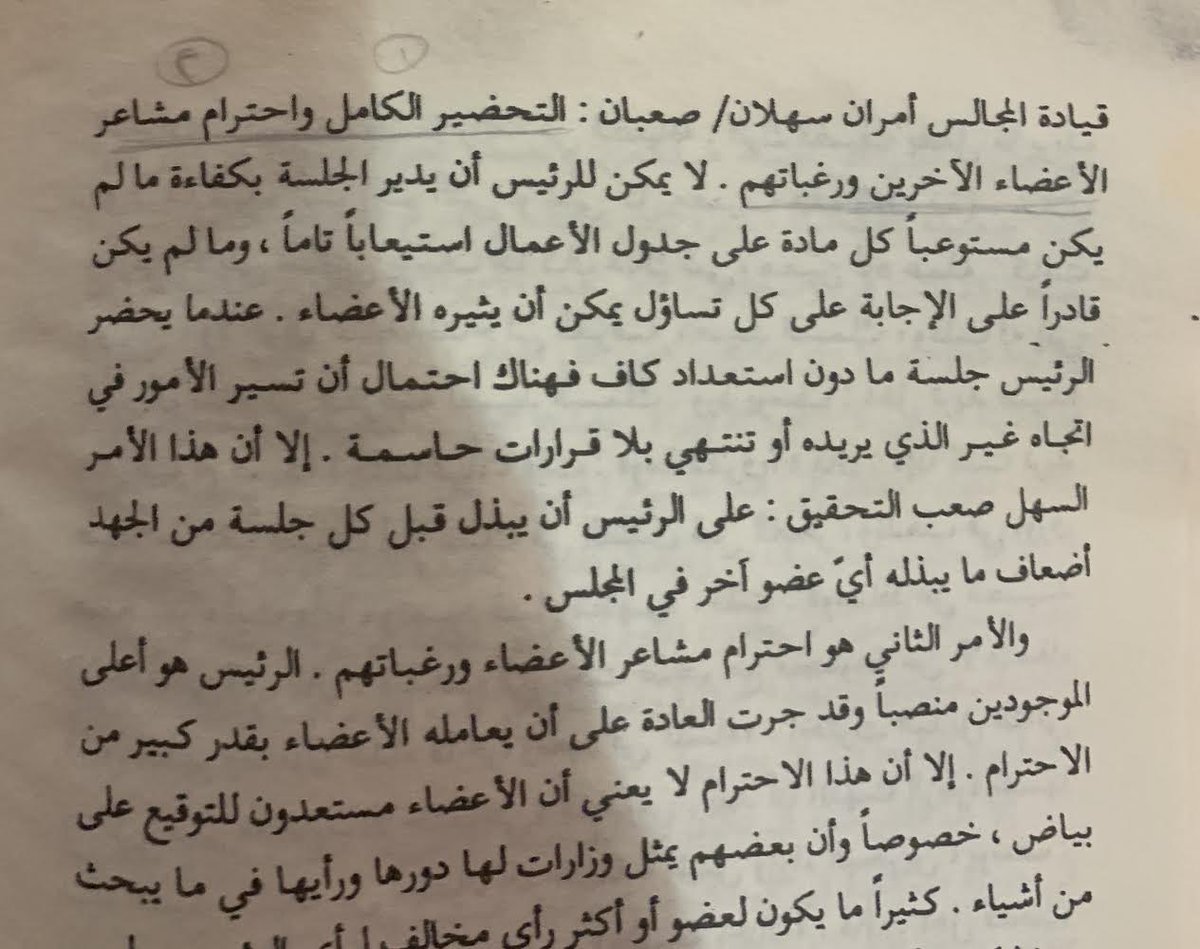 ١ ٢
قيادة المجالس أمران سهلان/ صعبان : التحضير الكامل واحترام مشاعر
الأعضاء الآخرين ورغباتهم . لا يمكن للرئيس أن يدير الجلسة بكفاءة ما لم
يكن مستوعباً كل مادة على جدول الأعمال استيعاباً تاماً ، وما لم يكن
قادراً على الإجابة على كل تساؤل يمكن أن يثيره الأعضاء . عندما يحضر
الرئيس جلسة ما دون استعداد كاف فهناك احتمال أن تسير الأمور في
اتجاه غير الذي يريده أو تنتهي بلا قرارات حاسمة . إلا أن هذا الأمر
السهل صعب التحقيق : على الرئيس أن يبذل قبل كل جلسة من الجهد
أضعاف ما يبذله أيّ عضو آخر في المجلس .
والأمر الثاني هو احترام مشاعر الأعضاء ورغباتهم . الرئيس هو أعلى
الموجودين منصباً وقد جرت العادة على أن يعامله الأعضاء بقدر كبير من
الاحترام . إلا أن هذا الاحترام لا يعني أن الأعضاء مستعدون للتوقيع على
بياض ، خصوصاً وأن بعضهم يمثل وزارات لها دورها ورأيها في ما يبحث
من أشياء . كثيراً ما يكون لعضو أو أكثر رأي مخالف